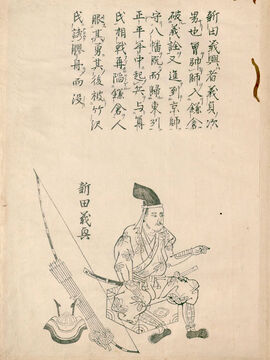 新田義興者義貞次
男也曽帥師入鎌倉
破義詮又進到京師
守八幡既而歸東
正平年中起兵与尊
氏相戰再陥鎌倉人
服其勇其後被竹沢
氏誘膠舟而没
新田義興